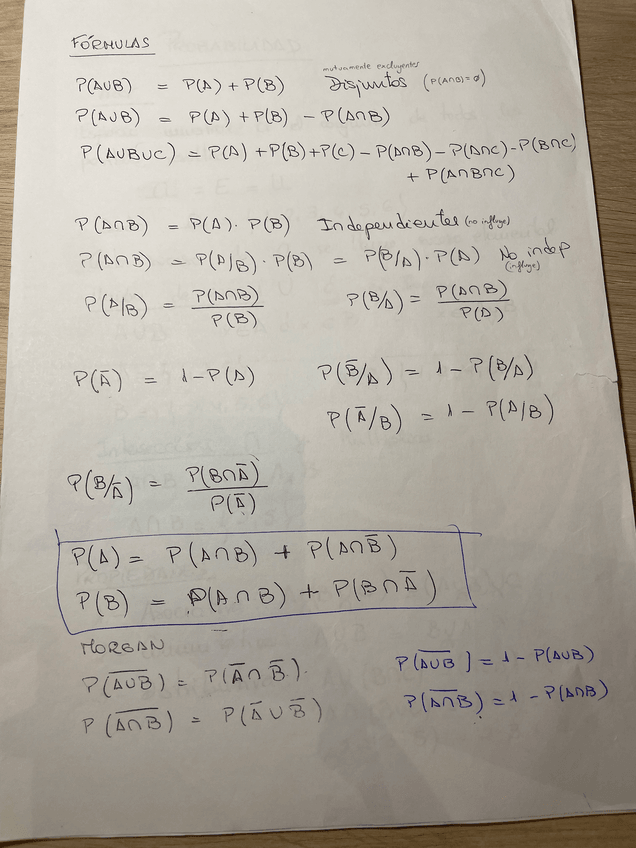 FÓRMULAS
mutuamente excluyentes
P(A∪B) = P(A) + P(B) Disjuntos (P(A∩B)=∅)
P(A∪B) = P(A) + P(B) - P(A∩B)
P(A∪B∪C) = P(A) + P(B) + P(C) - P(A∩B) - P(A∩C) - P(B∩C)
+ P(A∩B∩C)
P(A∩B) = P(A) · P(B) Independientes (no influye)
P(A∩B) = P(A/B) · P(B) = P(B/A) · P(A) No indep
(influye)
P(A/B) = P(A∩B)/P(B) P(B/A) = P(A∩B)/P(A)
P(A̅) = 1 - P(A) P(B̅/A) = 1 - P(B/A)
P(A̅/B) = 1 - P(A/B)
P(B/A̅) = P(B∩A̅)/P(A̅)
P(A) = P(A∩B) + P(A∩B̅)
P(B) = P(A∩B) + P(B∩A̅)
MORGAN
P(A̅∪̅B̅) = P(A̅∩B̅) P(A̅∪̅B̅) = 1 - P(A∪B)
P(A̅∩̅B̅) = P(A̅∪B̅) P(A̅∩̅B̅) = 1 - P(A∩B)